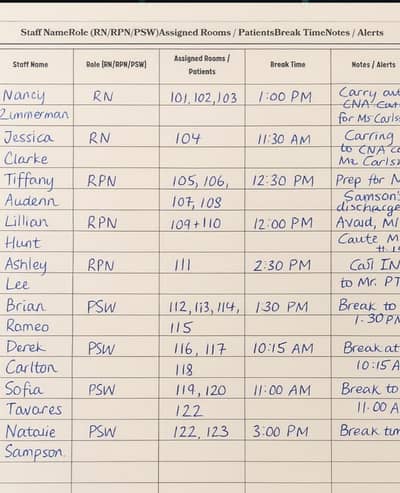 Staff NameRole (RN/RPN/PSW)Assigned Rooms / PatientsBreak TimeNotes / Alerts
Staff Name Role (RN/RPN/PSW) Assigned Rooms / Patients Break Time Notes / Alerts
Nancy RN 101,102,103 1:00 PM Carry out
Zimmerman CNA
for Ms Carls
Jessica RN 104 11:30 AM Carring
Clarke to CNA
Mr Carls
Tiffany RPN 105, 106, 12:30 PM Prep for M
Audenn 107, 108 Samson's
discharge
Lillian RPN 109+110 12:00 PM Avoid, M
Hunt Caute M
Ashley RPN 111 2:30 PM Call IN
Lee to Mr. PT
Brian PSW 112, 113, 114, 1:30 PM Break to
Romeo 115 1.30 PM
Derek PSW 116, 117 10:15 AM Break at
Carlton 118 10:15 A
Sofia PSW 119, 120 11:00 AM Break to
Tavares 122 11.00 A
Natalie PSW 122, 123 3:00 PM Break tim
Sampson.